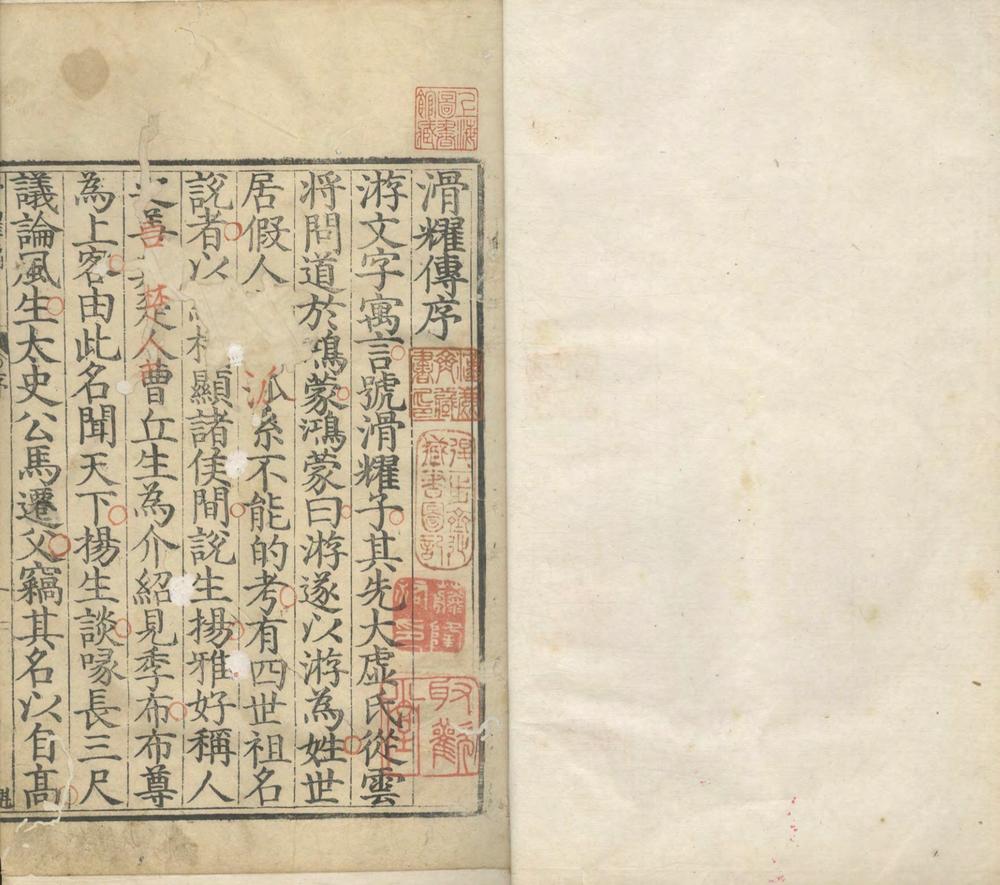 滑耀傳序
游文字寓言號滑耀子其先大虛氏從雲
将問道於鴻蒙鴻蒙曰游遂以游為姓世
居假人 派系不能的考有四世祖名
說者以 顯諸侯間說生揚雅好稱人
之善 楚人曹丘生為介紹見季布布尊
為上客由此名聞天下揚生談喙長三尺
議論風生太史公馬遷父竊其名以自高
上海圖書館藏